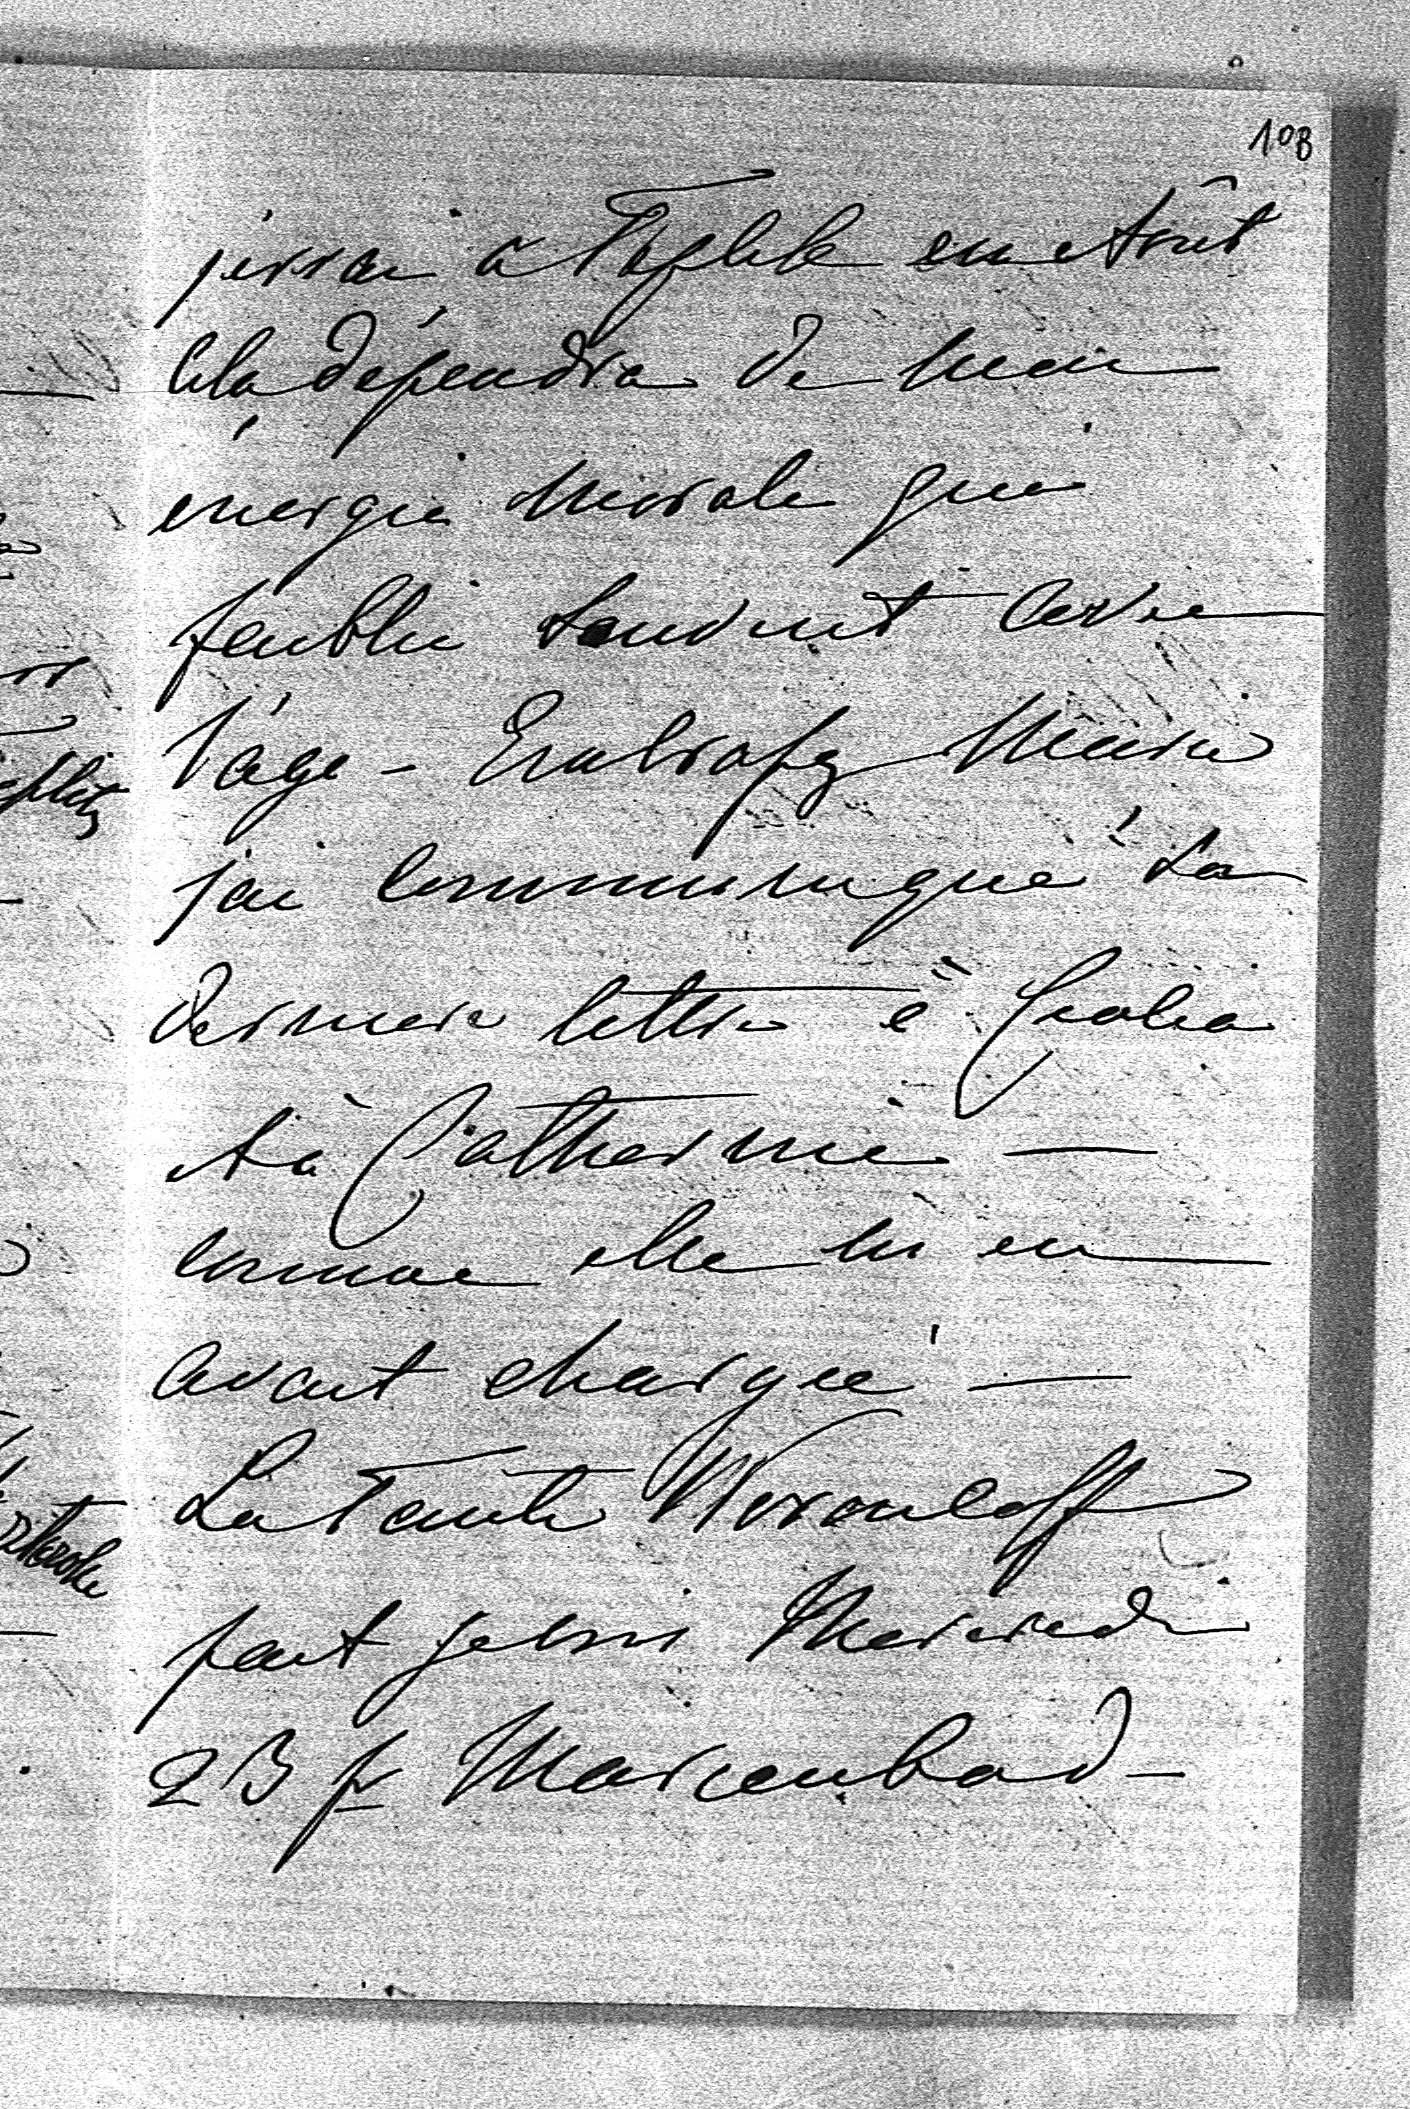 108
j'irai à Töplitz en Août
Cela dépendra de mon
énergie morale qui
faiblie souvent avec
l'âge - Embrassez Marie
j'ai communiqué sa
dernière lettre à
et à Catherine —
comme elle m'en
avait chargée —
La Tante Worontzoff
part jeudi Mercredi
23 pr Marienbad —